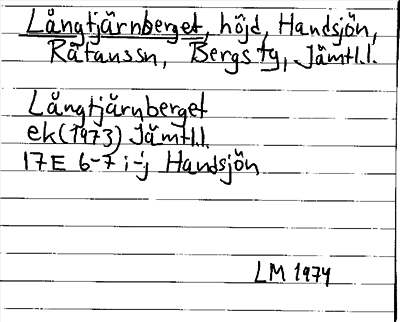 Långtjärnberget, höjd, Handsjön,
Rätanssn, Bergs tg, Jämtl.l.
Långtjärnberget
ek(1973) Jämtl.l.
17E 6-7 i-j Handsjön
LM 1974